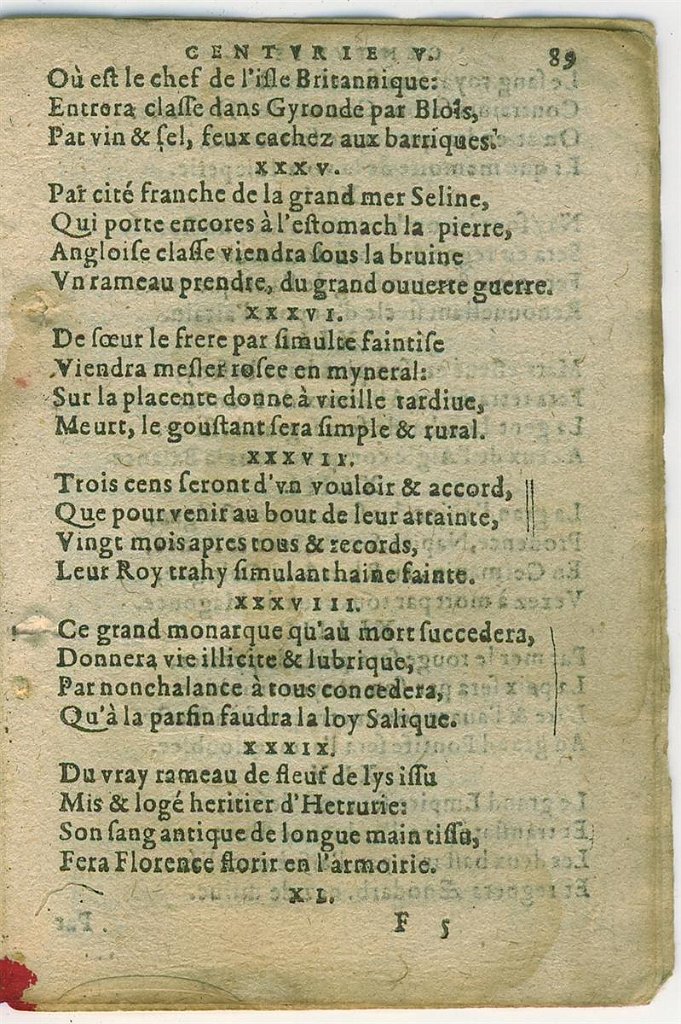 CENTVRIE V. 89
Où eſt le chef de l'iſle Britannique:
Entrera claſſe dans Gyronde par Blois,
Par vin & ſel, feux cachez aux barriques.
XXXV.
Par cité franche de la grand mer Seline,
Qui porte encores à l'eſtomach la pierre,
Angloiſe claſſe viendra ſous la bruine
Vn rameau prendre, du grand ouuerte guerre.
XXXVI.
De ſœur le frere par ſimulte faintiſe
Viendra meſler roſee en myneral:
Sur la placente donne à vieille tardiue,
Meurt, le gouſtant ſera ſimple & rural.
XXXVII.
Trois cens ſeront d'vn vouloir & accord,
Que pour venir au bout de leur attainte,
Vingt mois apres tous & records,
Leur Roy trahy ſimulant haine fainte.
XXXVIII.
Ce grand monarque qu'au mort ſuccedera,
Donnera vie illicite & lubrique,
Par nonchalance à tous concedera,
Qu'à la parfin faudra la loy Salique.
XXXIX.
Du vray rameau de fleur de lys iſſu
Mis & logé heritier d'Hetrurie:
Son ſang antique de longue main tiſſu,
Fera Florence florir en l'armoirie.
XL.
F 5